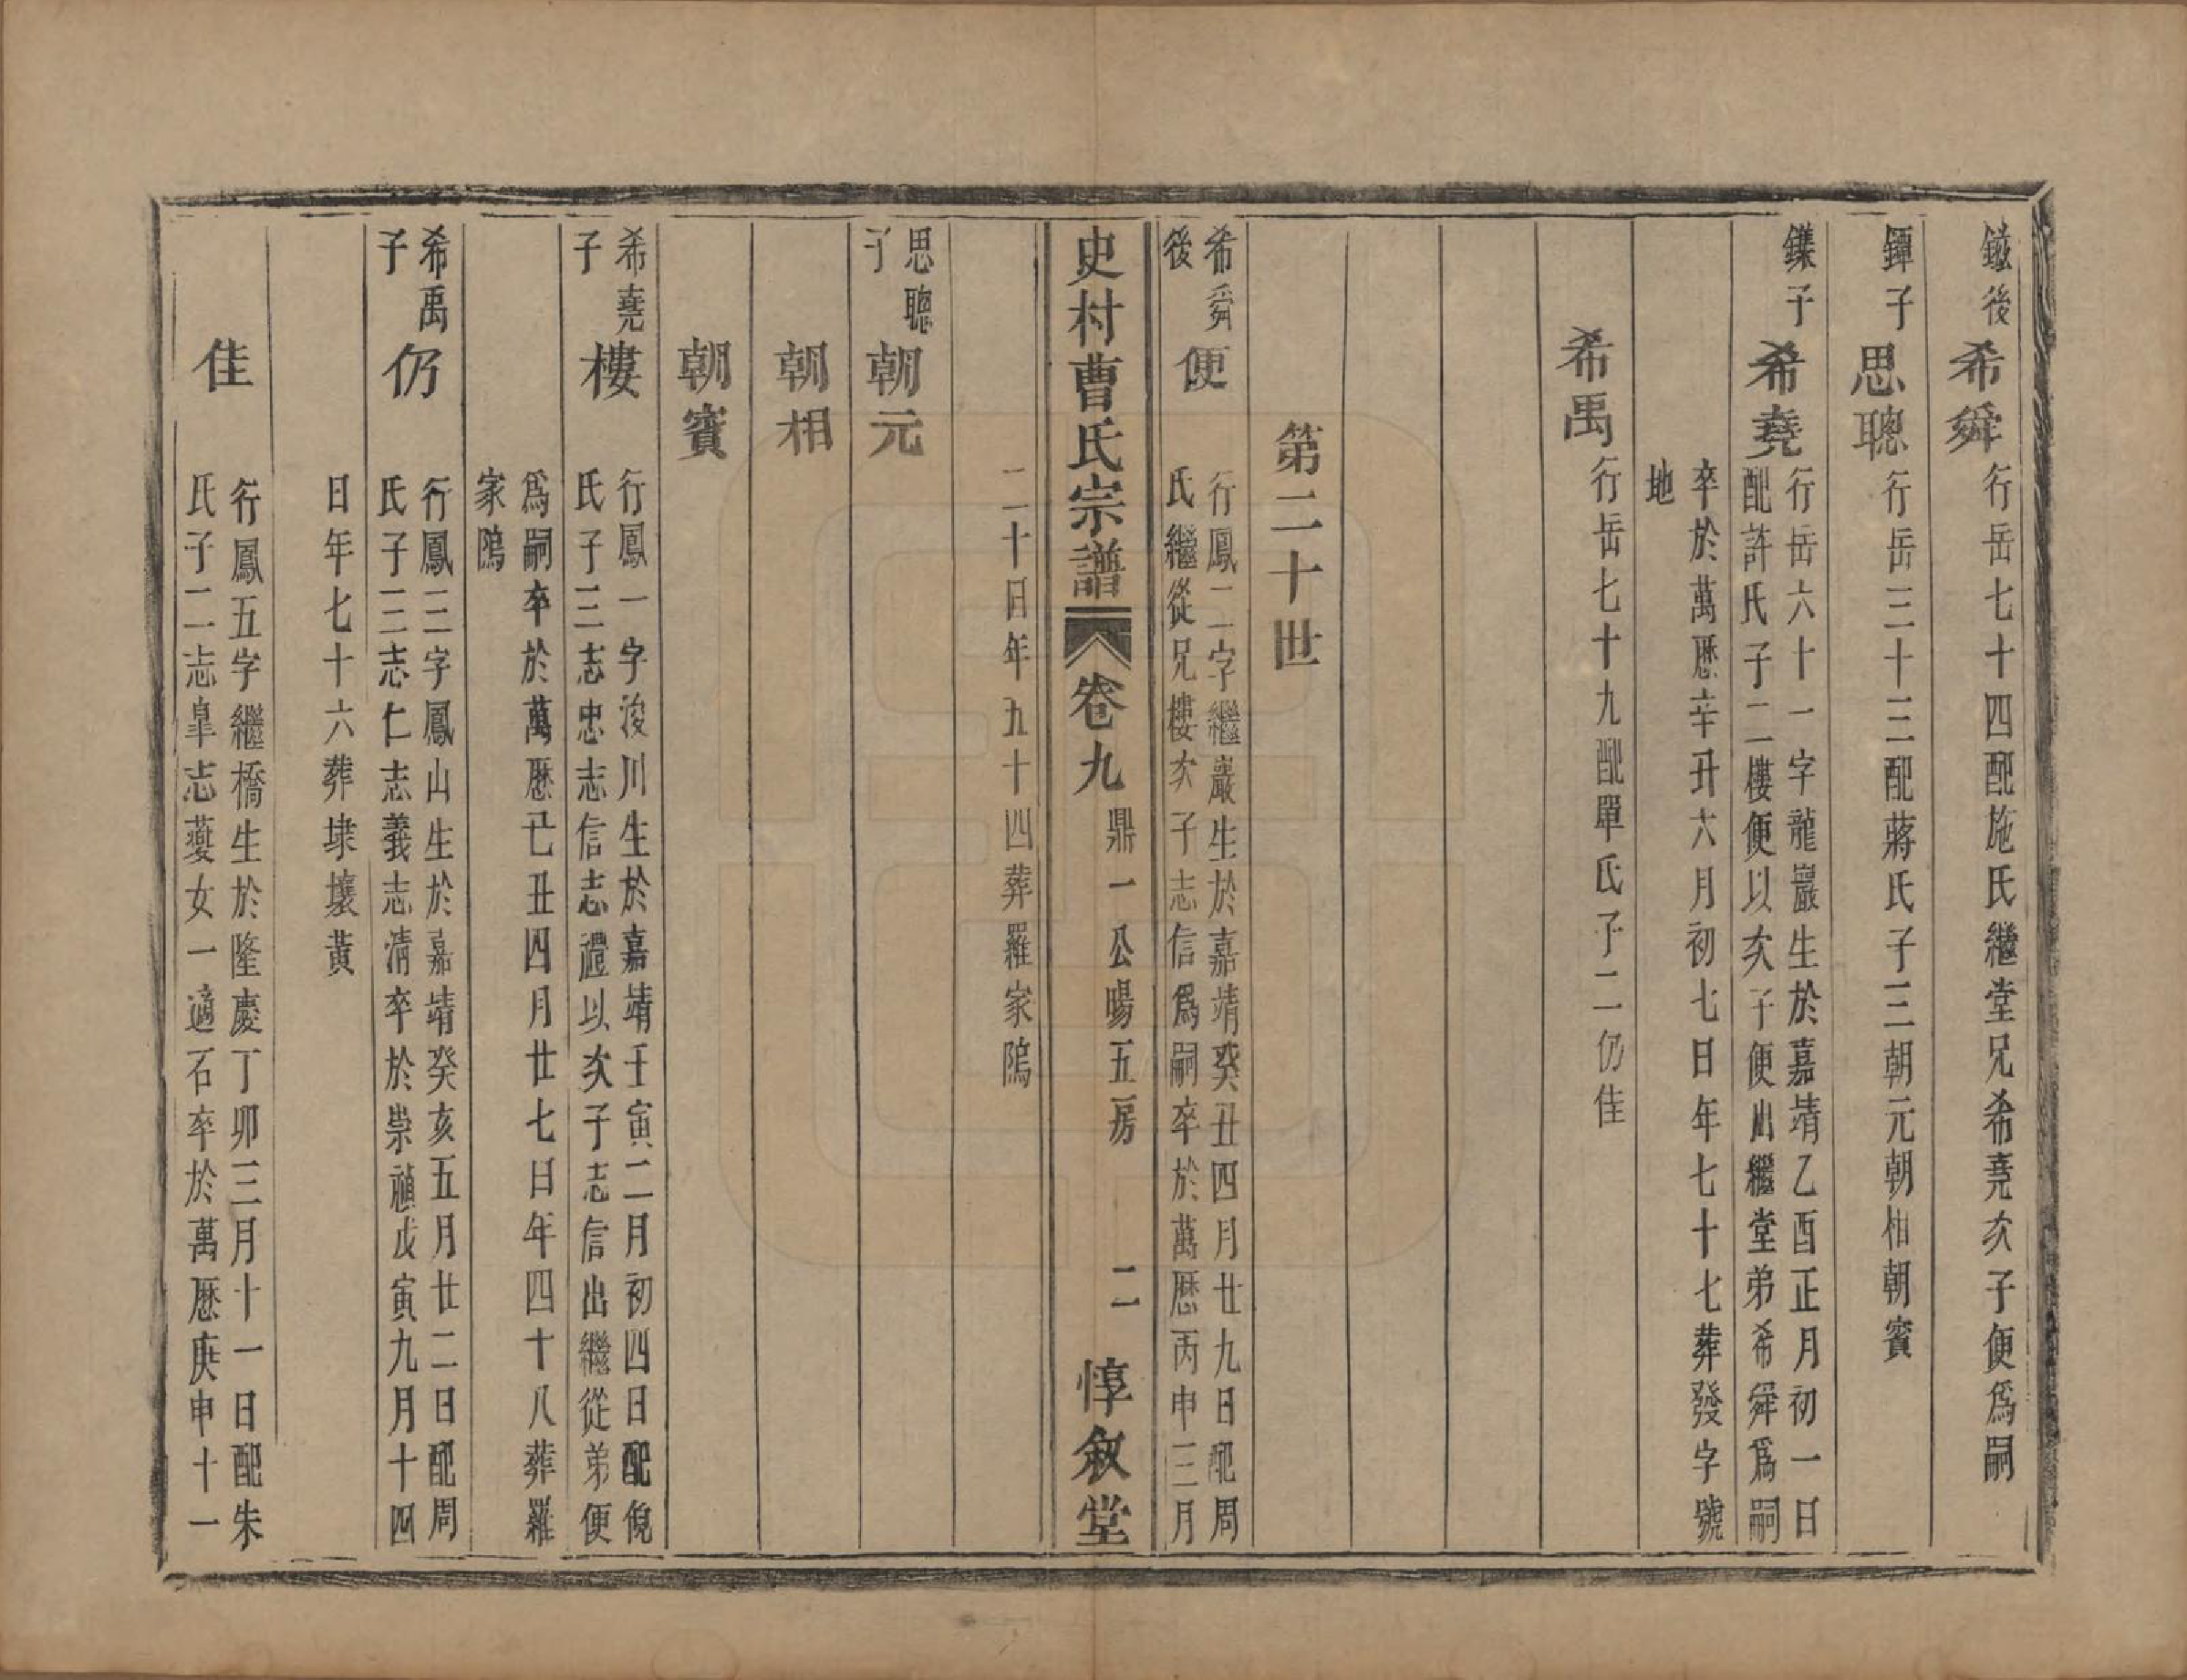 鎡後
希舜
行岳七十四配施氏繼堂兄希堯次子便爲嗣
鐔子
思聰
行岳三十三配蔣氏子三朝元朝相朝賓
鏷子
希堯
行岳六十一字龍巖生於嘉靖乙酉正月初一日
配許氏子二樓便以次子便出繼堂弟希舜爲嗣
卒於萬歷辛丑六月初七日年七十七葬發字號
地
希禹
行岳七十九配單氏子二仍佳
第二十世
希舜
後
便
行鳳二字繼巖生於嘉靖癸丑四月廿九日配周
氏繼從兄樓次子志信爲嗣卒於萬歷丙申三月
史村曹氏宗譜
卷九
鼎一公暘五房
二
惇叙堂
二十日年九十四葬羅家隖
思聰
子
朝元
朝相
朝賓
希堯
子
樓
行鳳一字浚川生於嘉靖壬寅二月初四日配倪
氏子三志忠志信志禮以次子志信出繼從弟便
爲嗣卒於萬歷己丑四月廿七日年四十八葬羅
家隖
希禹
子
仍
行鳳三字鳳山生於嘉靖癸亥五月廿二日配周
氏子三志仁志義志清卒於崇禎戊寅九月十四
日年七十六葬埭壞黃
佳
行鳳五字繼橋生於隆慶丁卯三月十一日配朱
氏子二志臯志夔女一適石卒於萬歷庚申十一